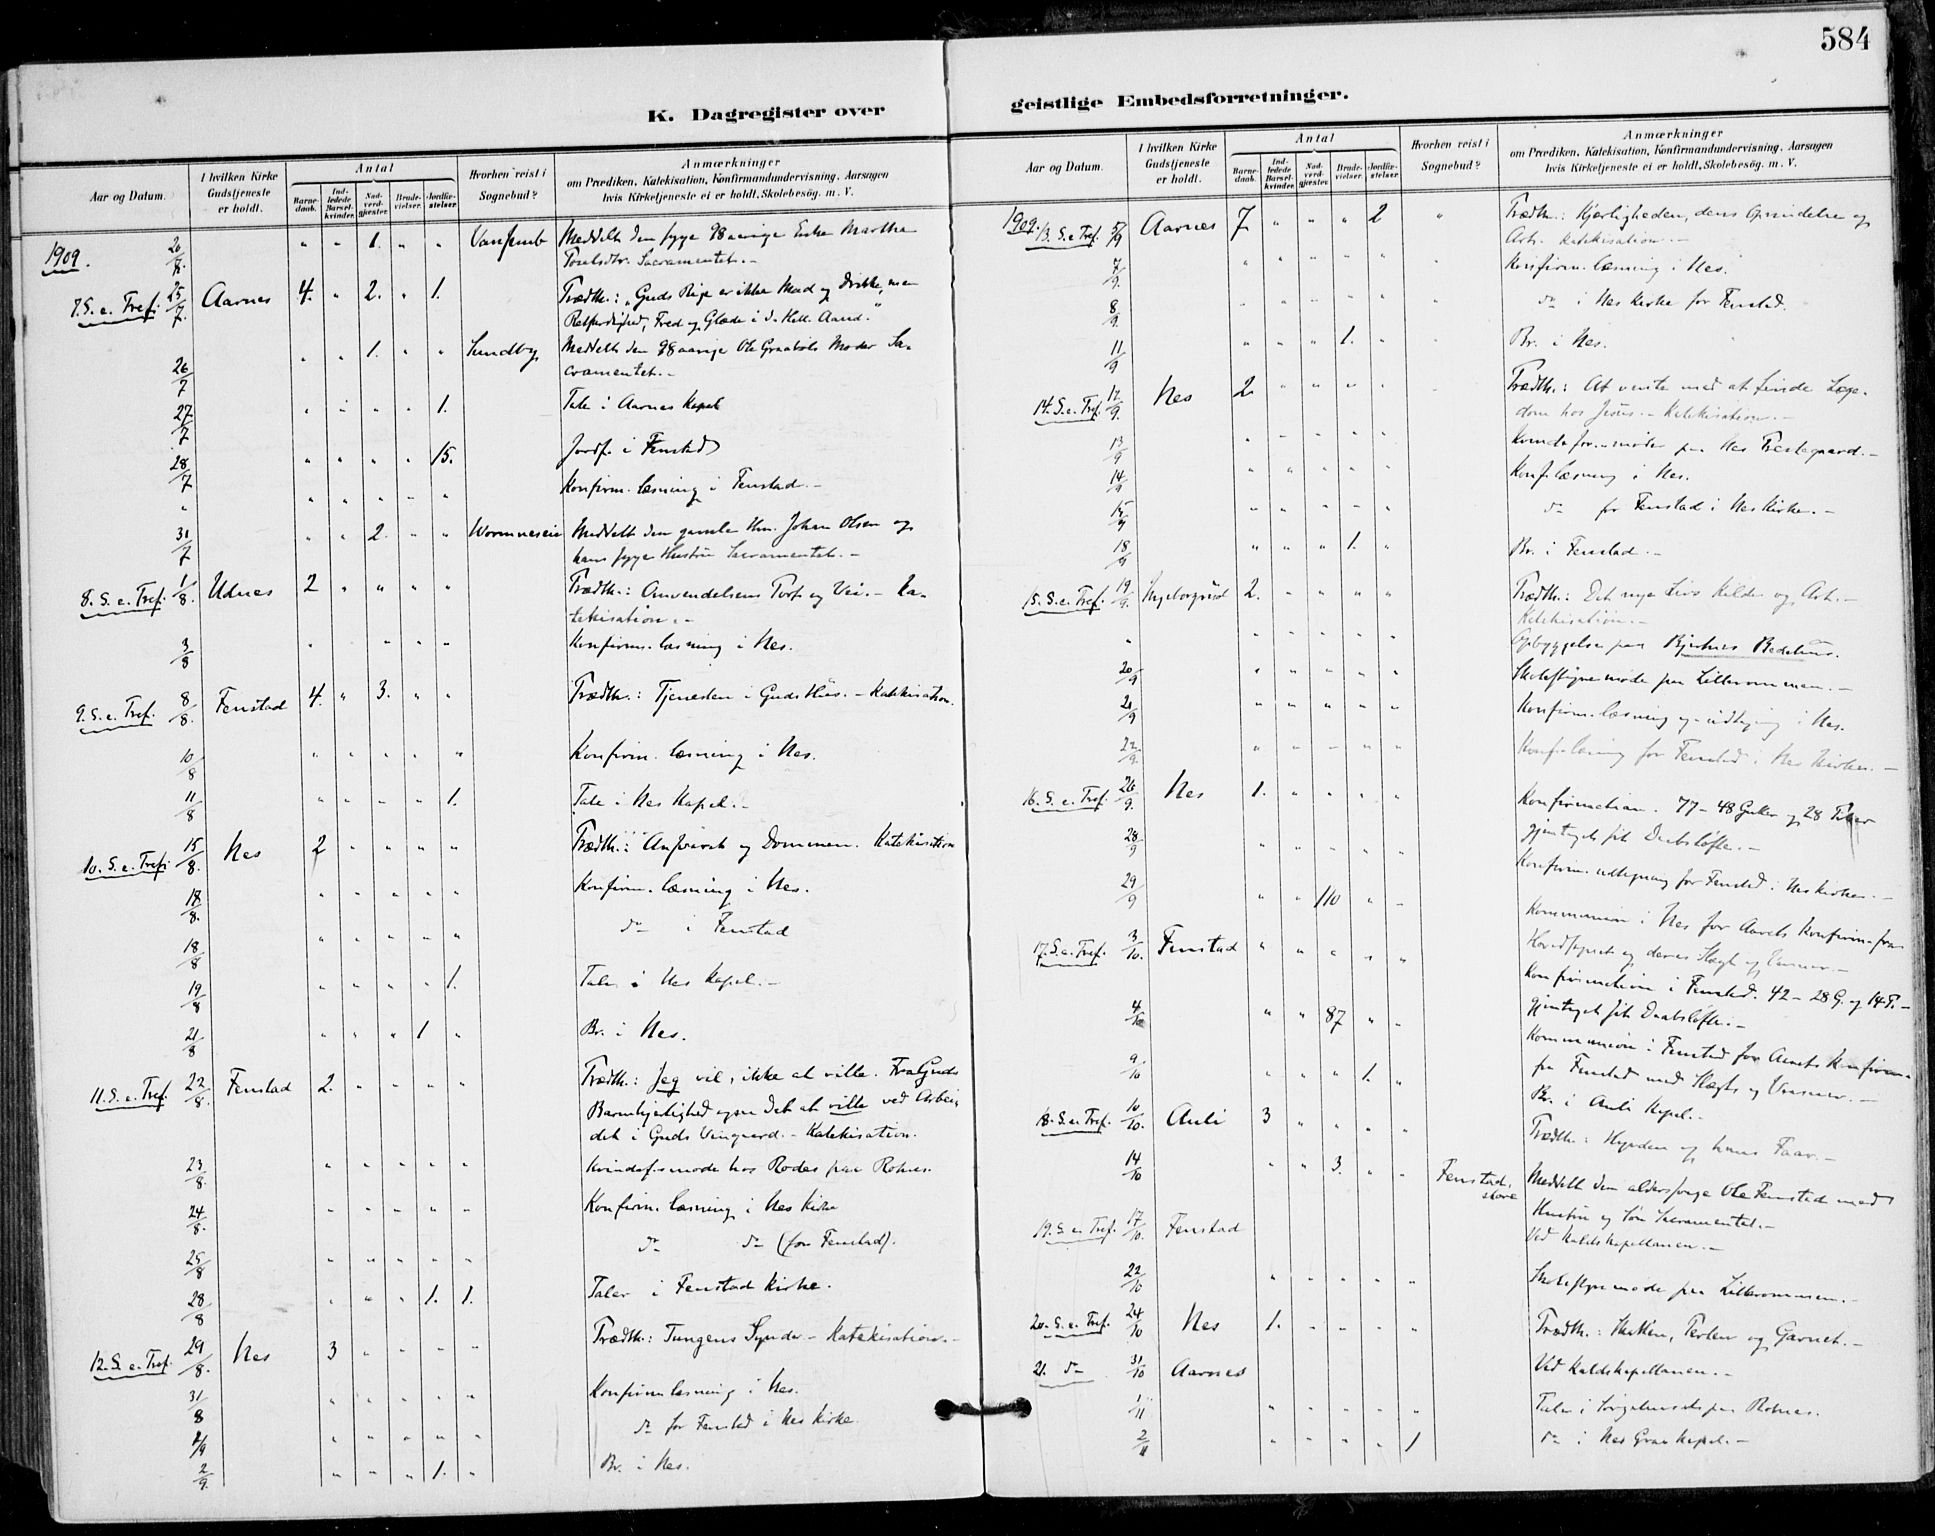 584
K. Dagregister over
Aar og Datum.
I hvilken Kirke Gudstjeneste er holdt.
Antal
Barnedaab.
Indledede Barselkvinder.
Nadverdgjester.
Brudevielser.
Jordfæstelser.
Hvorhen reist i Sognebud?
Anmærkninger
om Prædiken, Katekisation, Konfirmandundervisning. Aarsagen
hvis Kirketjeneste ei er holdt. Skolebesög. m. V.
1909. 20/7. " " 1. " " Meddelt den syge 98 aarige Enke Martha
Sacramentet. -
7. S. e. Tref. 25/7. Aarnes 4. " 2. " 1. Prædth.: "Guds Rige er ikke Mad og Drikke, men
Retfærdighed, Fred og Glæde i d. Hell. Aand."
26/7 " " 1. " " Sundby Meddelt den 98 aarige Ole Graabøls Moder Sa-
cramentet. -
27/7 " " " " 1. Tale i Aarnes Kapel
28/7 " " " " 15. Jordf. i Fenstad
" " " " " " Konfirm. læsning i Fenstad. -
31/7 " " 2. " " Wormneseie Meddelt den gamle Hm. Johan Olsen og
hans syge Hustru Sacramentet. -
8. S. e. Tref. 1/8. Udnes 2 " " " " Prædth.: Omvendelsens Port og Vei. - Ka-
tekisation. -
3/8 " " " " Konfirm. læsning i Nes.
9. S. e. Tref. 8/8. Fenstad 4. " 3. " " Prædth.: Tjenesten i Guds Hus. - Katekisation.
10/8 " " " " " Konfirm. læsning i Nes.
11/8 " " " " 1. Tale i Nes Kapel. -
10. S. e. Tref. 15/8. Nes 2 " " " " Prædth.: Ansvaret og Dommen. Katekisation
18/8. " " " " " Konfirm. læsning i Nes.
18/8 " " " " " do i Fenstad
19/8 " " " " 1. Tale i Nes Kapel. -
21/8 " " " 1 " Br. i Nes.
11. S. e. Tref. 22/8. Fenstad 2. " " " " Prædth.: Jeg vil, ikke at ville. Fra Guds
Barmhjertighed ogsaa det at ville ved Arbei-
det i Guds Vingaard. - Katekisation.
23/8. " " " " " Kvindef.møde hos Rodes paa Rohnes.
24/8. " " " " " Konfirm. læsning i Nes Kirke
25/8 " " " " " do do (for Fenstad).
28/8 " " " 1. 1. Taler i Fenstad Kirke.
12. S. e. Tref. 29/8. Nes 3 " " " " Prædth.: Tungens Synder - Katekisation. -
31/8 " " " " " Konfirm læsning i Nes.
1/9 " " " " " do for Fenstad i Nes Kirke
2/9. " " " 1. " Br. i Nes.
geistlige Embedsforretninger.
Aar og Datum.
I hvilken Kirke Gudstjeneste er holdt.
Antal
Barnedaab.
Indledede Barselkvinder.
Nadverdgjester.
Brudevielser.
Jordfæstelser.
Hvorhen reist i Sognebud?
Anmærkninger
om Prædiken, Katekisation, Konfirmandundervisning. Aarsagen
hvis Kirketjeneste ei er holdt. Skolebesög. m. V.
1909. 13. S. e. Tref. 5/9 Aarnes 7. " " " 2 " Prædth.: Kjærligheden, dens Oprindelse og
Art. Katekisation. -
7/9. " " " " " " Konfirm. læsning i Nes.
8/9. " " " " " " do i Nes Kirke for Fenstad.
11/9 " " " 1. " " Br. i Nes.
14. S. e. Tref. 12/9. Nes 2. " " " " Prædth.: At vente med at finde Læge-
dom hos Jesus. - Katekisation. -
13/9 " " " " " Kvindefor. møte paa Nes Prestegaard. -
14/9 " " " " " Konf. læsning i Nes.
15/9 " " " " " do for Fenstad i Nes Kirke. -
18/9 " " " 1. " Br. i Fenstad. -
15. S. e. Tref. 19/9. Ingeborgrud 2. " " " " Prædth.: Det nye Livs Kilde og Art. -
Katekisation. -
" " " " " " Opbyggelse paa Bedehus.
20/9 " " " " " møde paa Lillerommen. -
21/9 " " " " " Konfirm. læsning og udtegning i Nes.
22/9. " " " " " Konf. læsning for Fenstad i Nes Kirke. -
16. S. e. Tref. 26/9. Nes 1. " " " " Konfirmation. 77 - 48 Gutter og 28 Piker
gjentoget sit Daabsløfte. -
28/9 " " " " " Konfirm. udtegning for Fenstad i Nes kirke. -
29/9 " " 110 " " Kommunion i Nes for Aarets Konfirm. fra
Hovedsognet og deres Slægt og Venner. -
17. S. e. Tref. 3/10. Fenstad " " " " " Konfirmation i Fenstad. 42 - 28 G. og 14 P. -
gjentoget sit Daabsløfte. -
4/10 " " 87 " " Kommunion i Fenstad for Aarets Konfirm.
fra Fenstad med Slægt og Venner. -
9/10 " " " 1. " Br. i Auli Kapel. -
18. S. e. Tref. 10/10. Auli 3 " " " " Prædth.: Hyrden og hans Faar. -
14/10 " " 3. " " Fenstad, store Meddelt den alderssvage Ole Fenstad med
Hustru og Søn Sacramentet. -
19. S. e. Tref. 17/10. Fenstad Ved Kaldskapellanen. -
22/10 " " " " " møde paa Lillerommen. -
20. S. e. Tref. 24/10 Nes 1. " " " " Prædth.: Skatten, Perlen og Garnet. -
21. do 31/10 Aarnes Ved Kaldskapellanen. -
1/11 " " " " " Tale i Sørgehuset paa Rohnes.
2/11 " " " " 1 do i Nes Grav Kapel. -